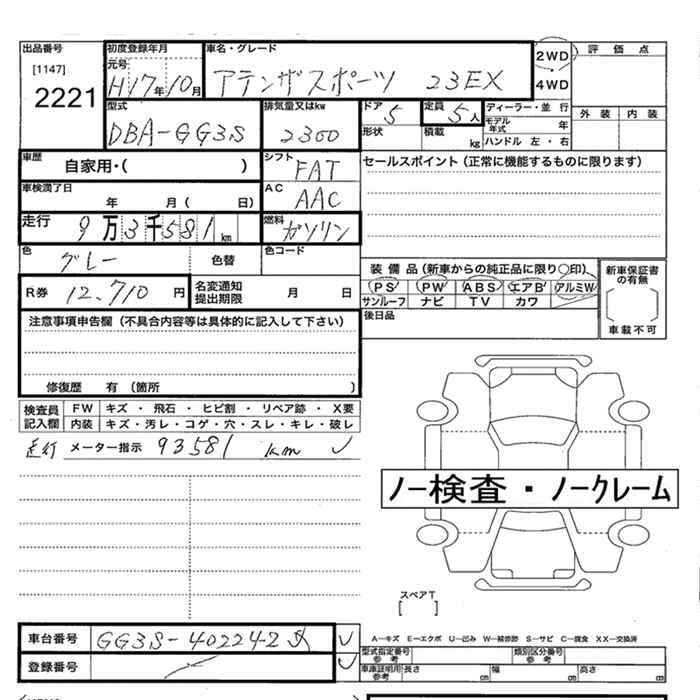 出品番号 初度登録年月 車名・グレード 評価点
[1147] 元号 2WD
2221 H17年10月 アテンザスポーツ 23EX 4WD
型式 排気量又はkw ドア 定員 ディーラー・並 行 外装 内装
DBA-GG3S 2300 5 5人 モデル年式 年
形状 積載 kg ハンドル 左・右
車歴 自家用・( ) シフト FAT セールスポイント(正常に機能するものに限ります)
車検満了日 年 月( 日) AC AAC
走行 9万3千581km 燃料 ガソリン
色 グレー 色替 色コード
装備品(新車からの純正品に限り○印) 新車保証書の有無
R券 12,710円 名変通知提出期限 月 日 PS PW ABS エアB アルミW
サンルーフ ナビ TV カワ
注意事項申告欄(不具合内容等は具体的に記入して下さい) 後日品 車載不可
修復歴 有 (箇所 )
検査員記入欄 FW キズ・飛石・ヒビ割・リペア跡・X要
内装 キズ・汚レ・コゲ・穴・スレ・キレ・破レ
走行 メーター指示 93581 km
ノー検査・ノークレーム
スペアT
[ ]
車台番号 GG3S-402242 A―キズ E―エクボ U―凹み W―補修跡 S―サビ C―腐食 XX―交換済
型式指定番号 参考 類別区分番号 参考
登録番号 車庫証明用参考 長さ cm 幅 cm 高さ cm